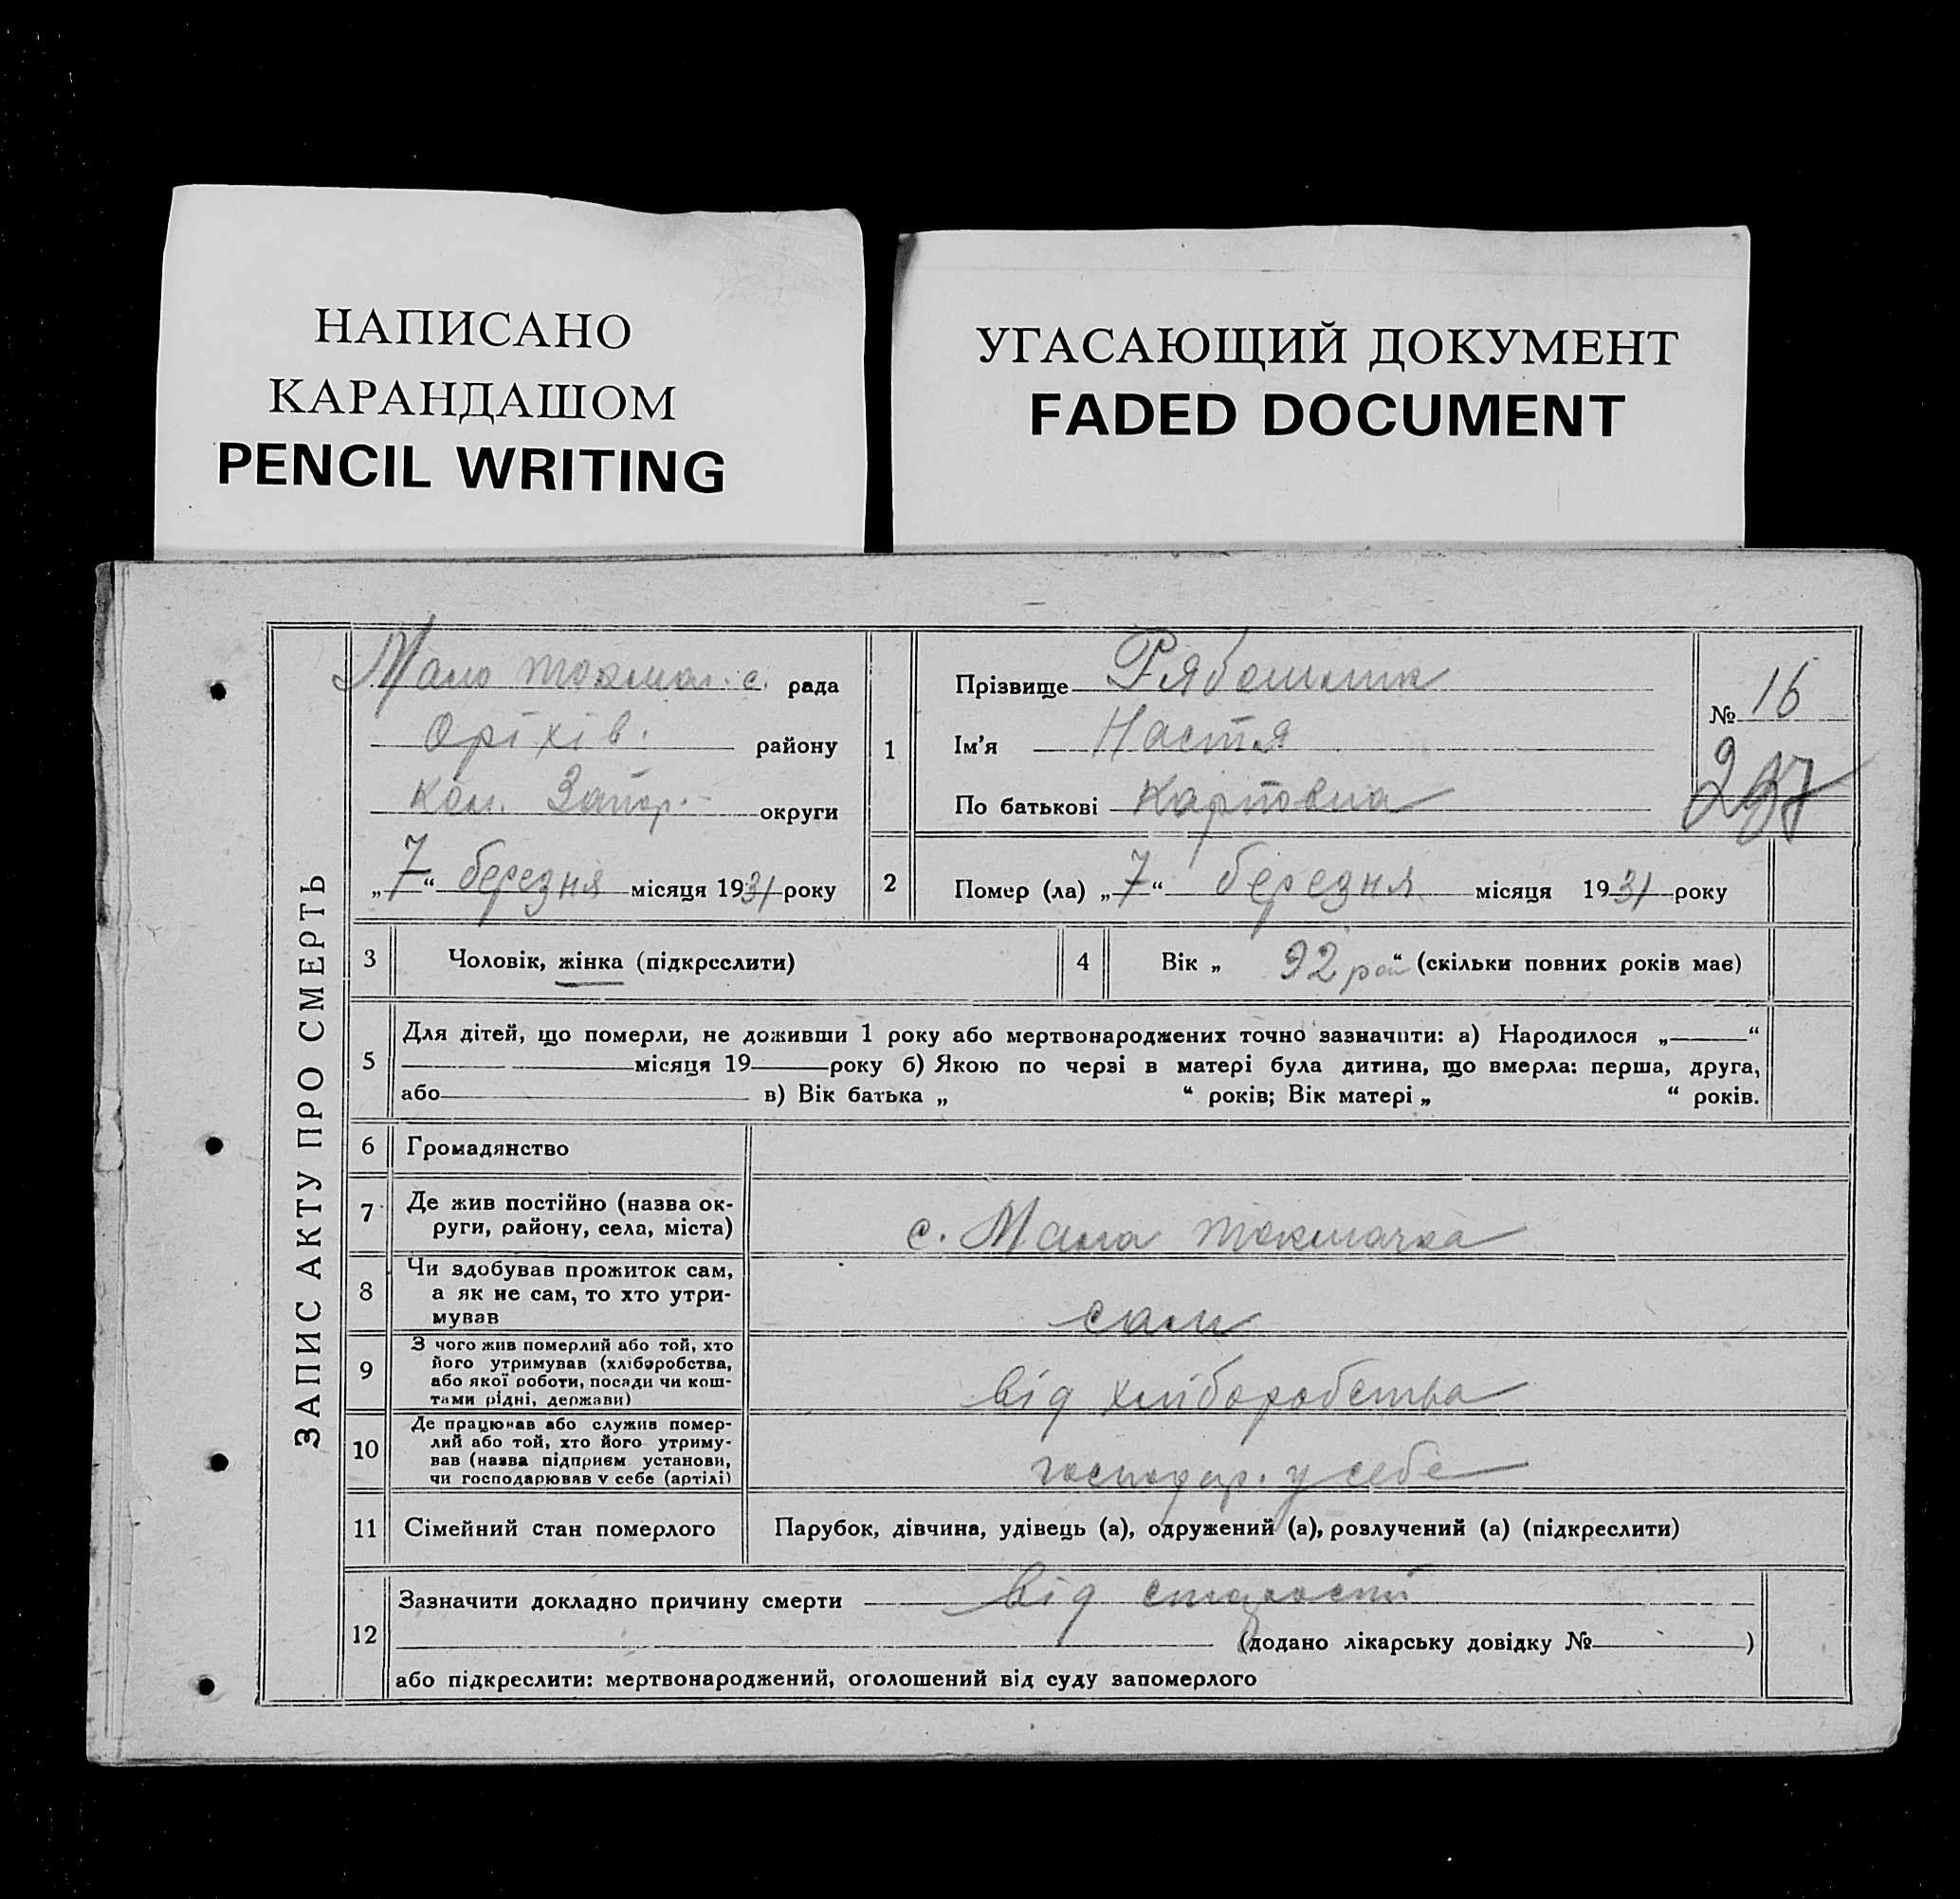 НАПИСАНО
КАРАНДАШОМ
PENCIL WRITING
УГАСАЮЩИЙ ДОКУМЕНТ
FADED DOCUMENT
ЗАПИС АКТУ ПРО СМЕРТЬ
Мало Токмач. с. рада
Оріхів. району
кол. Запор. округи
„7“ березня місяця 1931 року
1
Прізвище Рябошапк
Ім'я Настя
По батькові Карповна
№ 16
237
2 Помер (ла) „7“ березня місяця 1931 року
3 Чоловік, жінка (підкреслити)
4 Вік „ 92 “ (скільки повних років має)
5
Для дітей, що померли, не доживши 1 року або мертвонароджених точно зазначити: а) Народилося „ “
місяця 19 року б) Якою по черзі в матері була дитина, що вмерла: перша, друга,
або в) Вік батька „ “ років; Вік матері „ “ років.
6 Громадянство
7 Де жив постійно (назва ок-
руги, району, села, міста)
с. Мала Токмачка
8 Чи здобував прожиток сам,
а як не сам, то хто утри-
мував
сам
9 З чого жив померлий або той, хто
його утримував (хліборобства,
або якої роботи, посади чи кош-
тами рідні, держави)
від хліборобства
10 Де працював або служив помер-
лий або той, хто його утриму-
вав (назва підприєм установи,
чи господарював у себе (артілі)
господар. у себе
11 Сімейний стан померлого Парубок, дівчина, удівець (а), одружений (а), розлучений (а) (підкреслити)
12
Зазначити докладно причину смерти від старости
(додано лікарську довідку № )
або підкреслити: мертвонароджений, оголошений від суду запомерлого